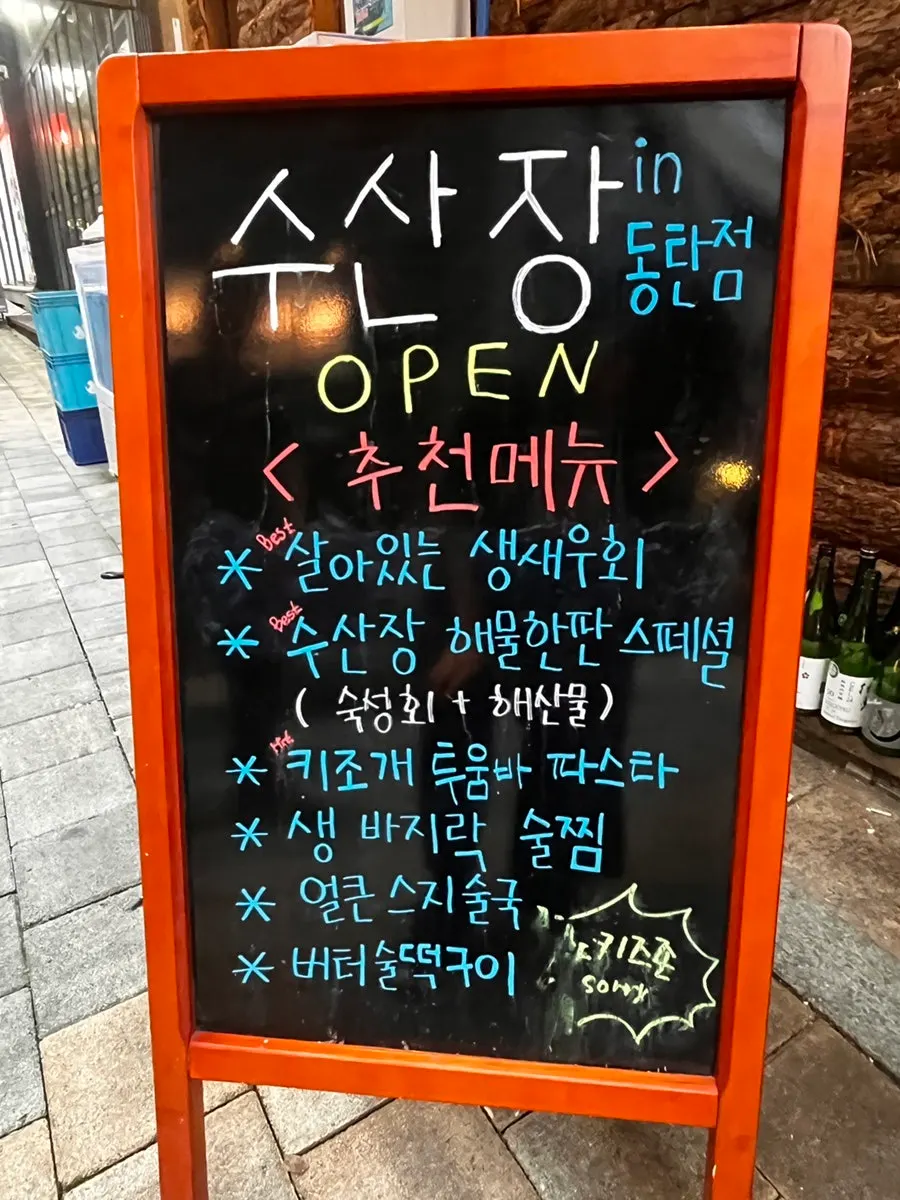 수산장 in
동탄점
OPEN
< 추천메뉴 >
* Best 살아있는 생새우회
* Best 수산장 해물한판 스페셜
( 숙성회 + 해산물 )
* 키조개 투움바 파스타
* 생 바지락 술찜
* 얼큰 스지술국
* 버터술떡구이
키즈존
sorry